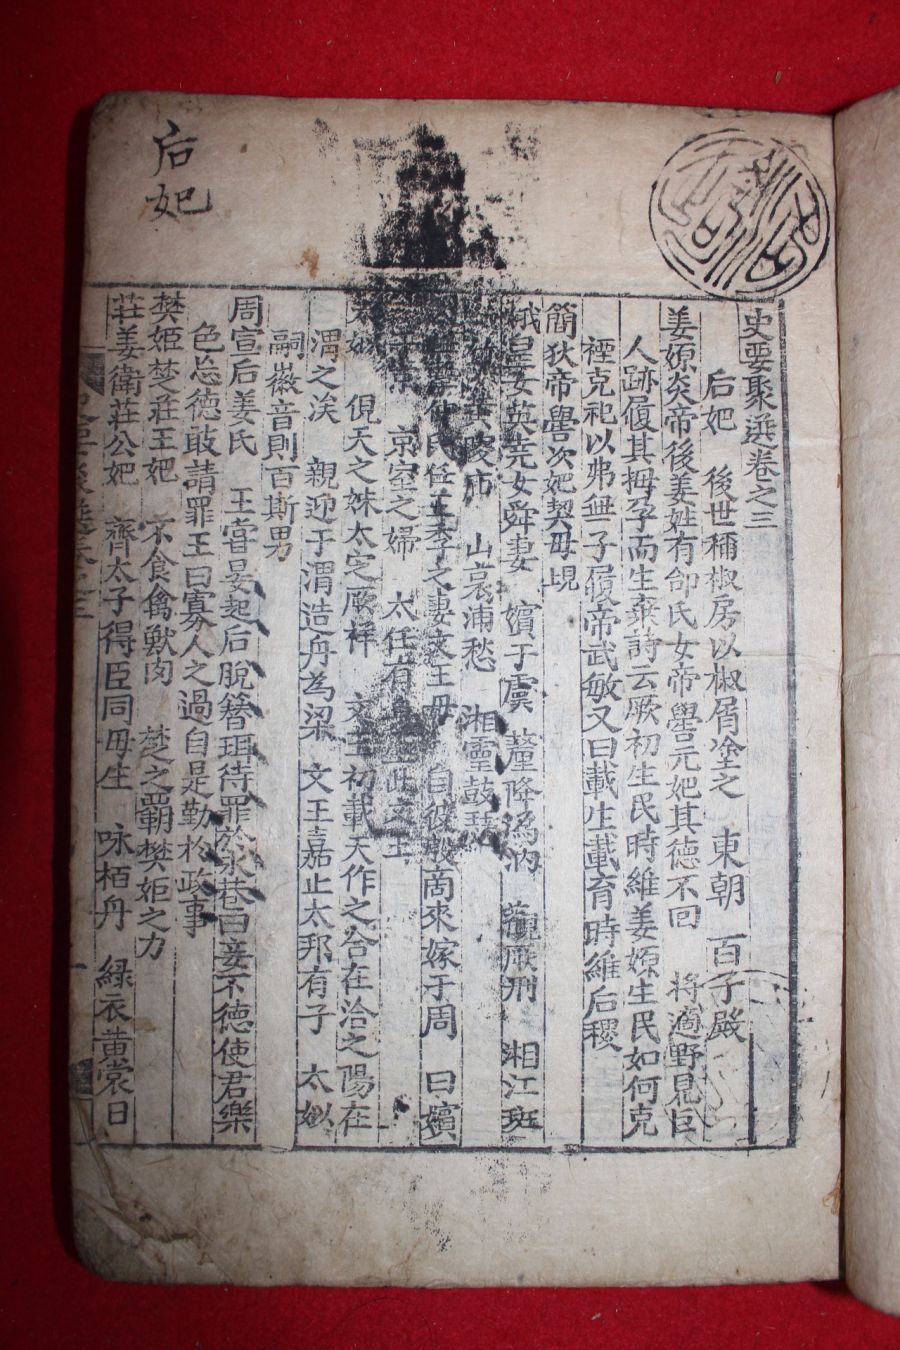 后妃
史要聚選卷之三
后妃 後世稱椒房以椒屑塗之 東朝 百子殿
姜嫄炎帝後姜姓有邰氏女帝嚳元妃其德不回 將適野見巨
人跡履其拇孕而生棄詩云厥初生民時維姜嫄生民如何克
禋克祀以弗無子履帝武敏又曰載生載育時維后稷
簡狄帝嚳次妃契母
娥皇女英堯女舜妻 嬪于虞 釐降溈汭 觀厥刑 湘江斑
山哀浦愁 湘靈鼓瑟
氏任王季之妻文王母 自彼殷商來嫁于周 曰嬪
京室之婦 太任有 此文王
俔天之妹太定厥祥 文王初載天作之合在洽之陽在
渭之涘 親迎于渭造舟為梁 文王嘉止太邦有子 太姒
嗣徽音則百斯男
周宣后姜氏 王嘗晏起后脫簪珥待罪於永巷曰妾不德使君樂
色忘德敢請罪王曰寡人之過自是勤於政事
樊姬楚莊王妃 不食禽獸肉 楚之霸樊姬之力
莊姜衛莊公妃 齊太子得臣同母生 咏栢舟 綠衣黃裳曰